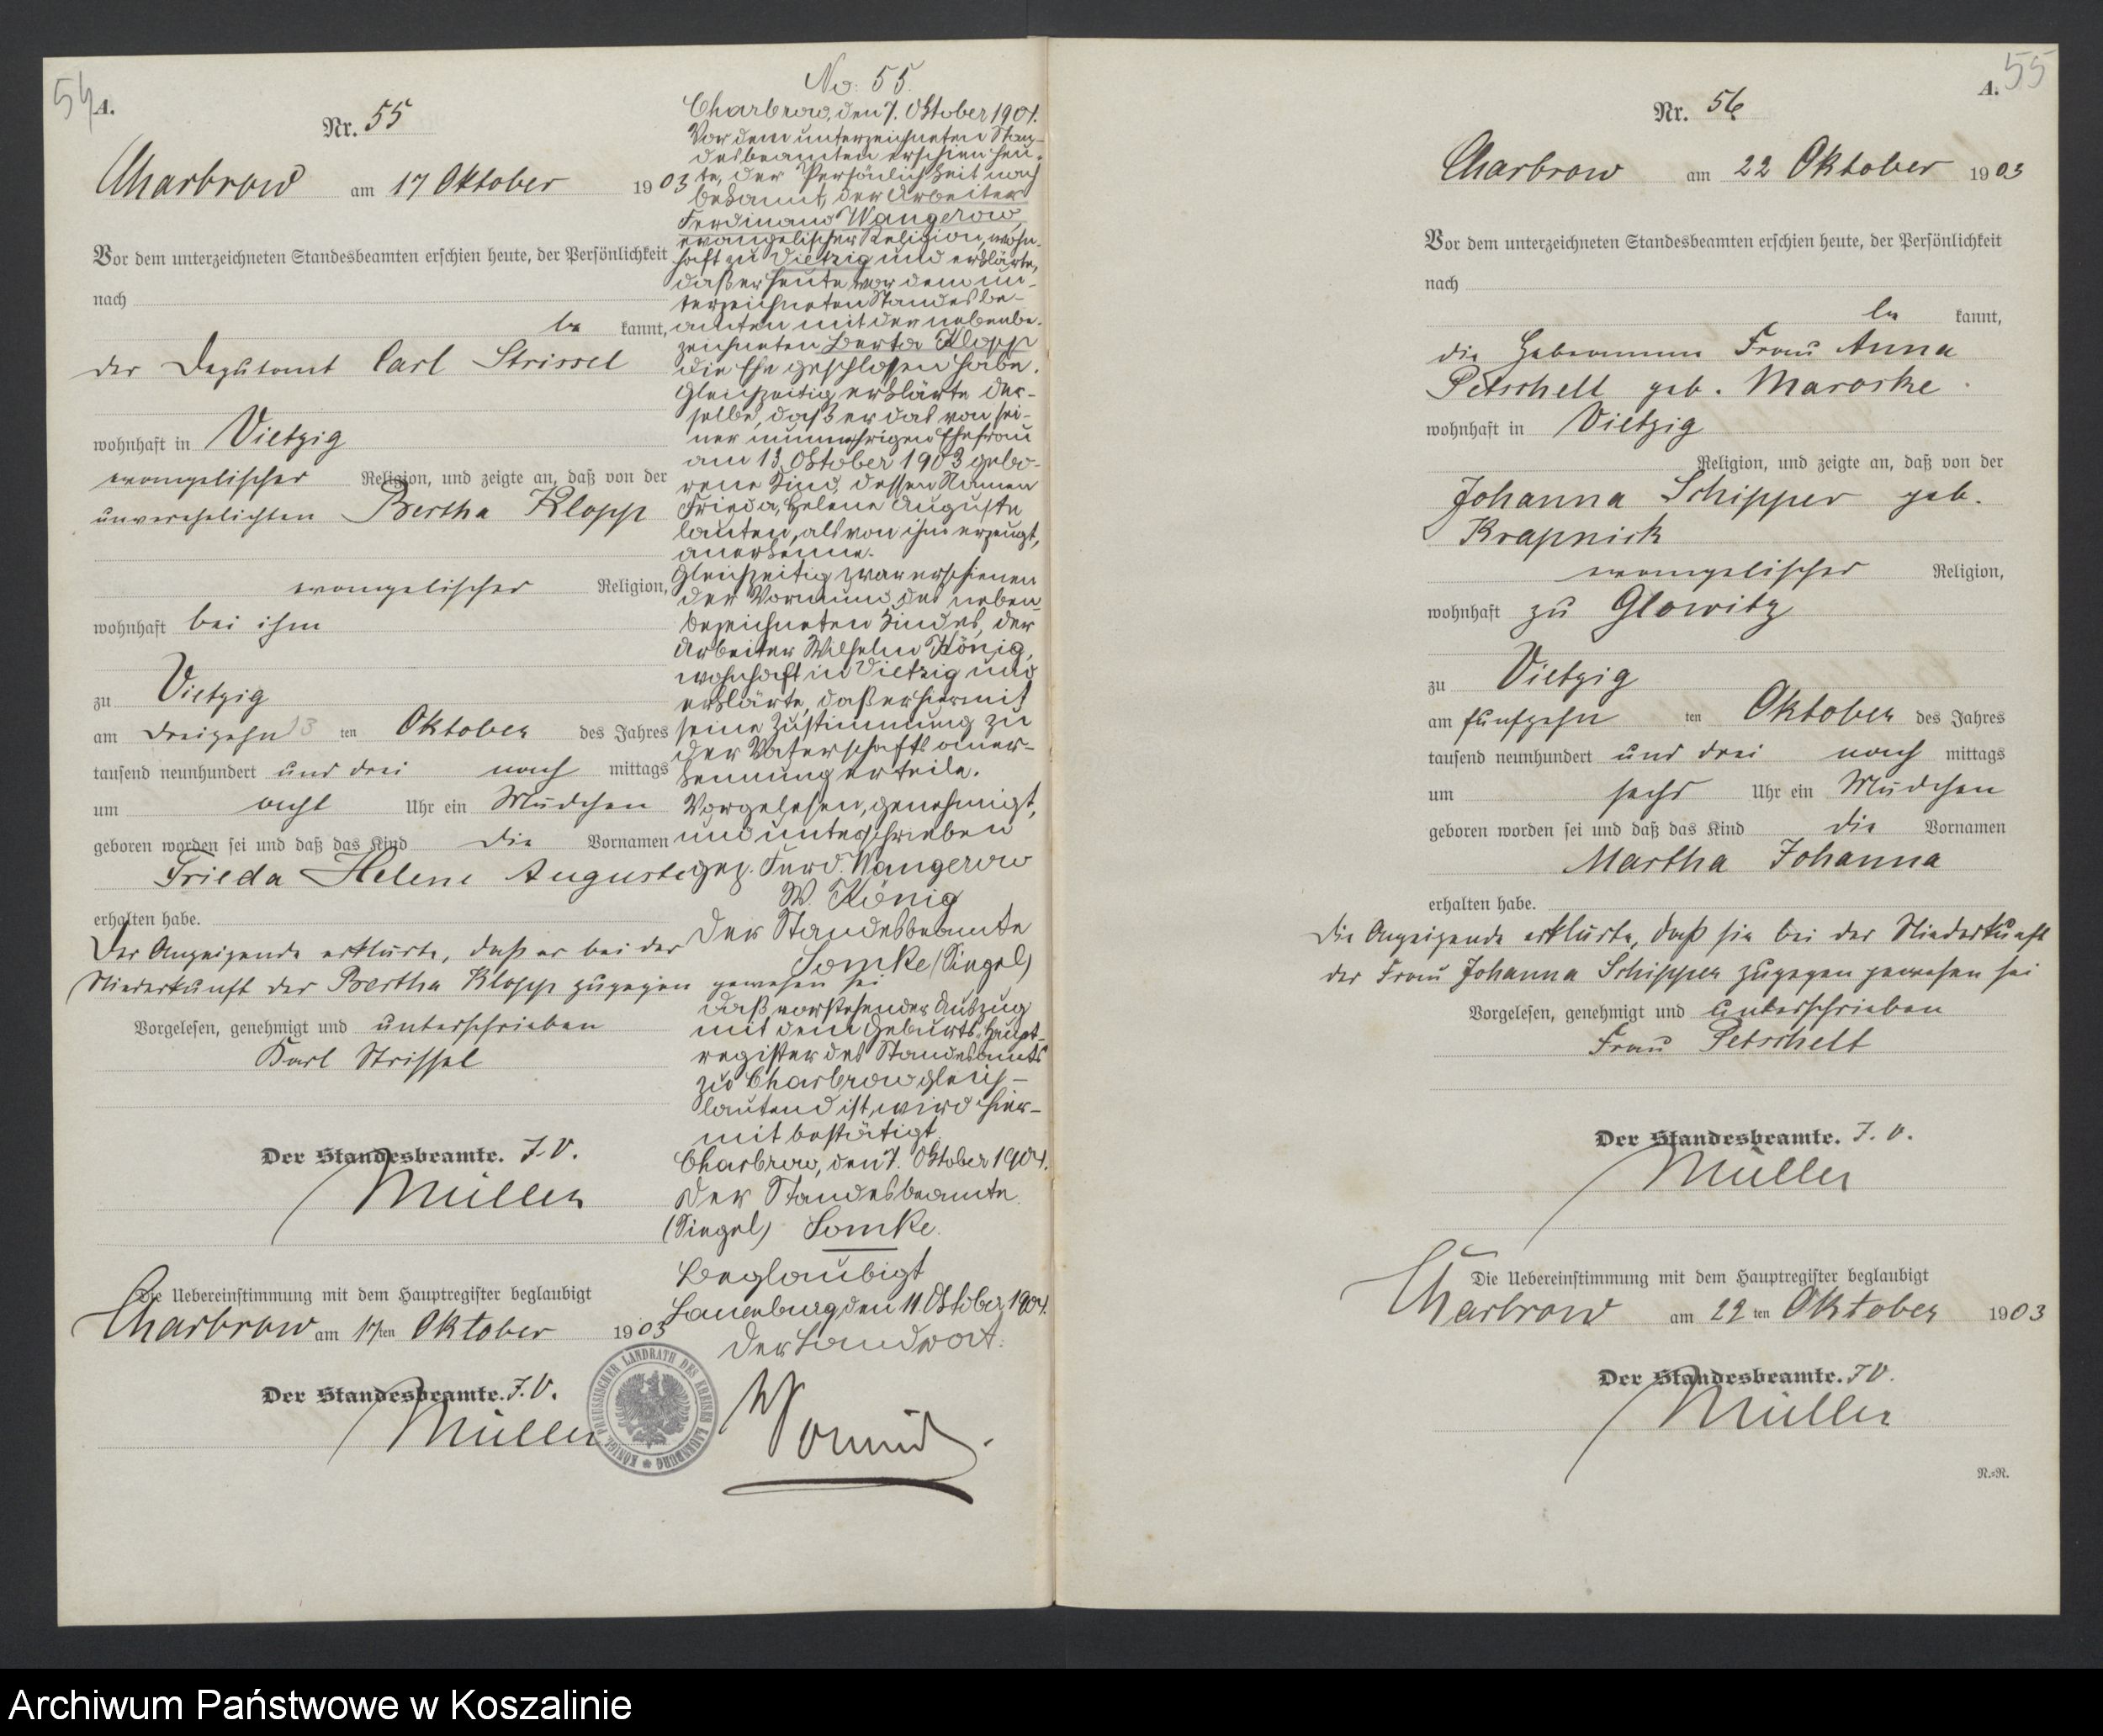 54
A.
Nr. 55
Charbrow am 17 Oktober 1903
Vor dem unterzeichneten Standesbeamten erschien heute, der Persönlichkeit
nach
be kannt,
der Deputant Carl Strissel
wohnhaft in Vietzig
evangelischer Religion, und zeigte an, daß von der
unverehelichten Bertha Klopp
evangelischer Religion,
wohnhaft bei ihm
zu Vietzig
am dreizehn 13 ten Oktober des Jahres
tausend neunhundert und drei nach mittags
um acht Uhr ein Mädchen
geboren worden sei und daß das Kind die Vornamen
Frieda Helene Auguste
erhalten habe.
Der Anzeigende erklärte, daß er bei der
Niederkunft der Bertha Klopp zugegen gewesen sei
Vorgelesen, genehmigt und unterschrieben
Karl Strissel
Der Standesbeamte. I.V.
Müller
Die Uebereinstimmung mit dem Hauptregister beglaubigt
Charbrow am 17 ten Oktober 1903
Der Standesbeamte. I.V.
Müller
No: 55.
Charbrow, den 7. Oktober 1904.
Vor dem unterzeichneten Stan-
desbeamten erschien heu-
te, der Persönlichkeit nach
bekannt, der Arbeiter
Ferdinand Wangerow,
evangelischer Religion, wohn-
haft zu Vietzig und erklärte,
daß er heute vor dem un-
terzeichneten Standesbe-
amten mit der nebenbe-
zeichneten Berta Klopp
die Ehe geschlossen habe.
Gleichzeitig erklärte der-
selbe, daß er das von sei-
ner nunmehrigen Ehefrau
am 13. Oktober 1903 gebo-
rene Kind, dessen Namen
Frieda, Helene Auguste
lauten, als von ihm erzeugt,
anerkenne.
Gleichzeitig war erschienen
der Vormund des neben-
bezeichneten Kindes, der
Arbeiter Wilhelm König,
wohnhaft in Vietzig und
erklärte, daß er hiermit
seine Zustimmung zu
der Vaterschaftsaner-
kennung erteile.
Vorgelesen, genehmigt,
und unterschrieben
gez. Ferd. Wangerow
W. König
Der Standesbeamte
Lomke (Siegel)
Daß vorstehender Auszug
mit dem Geburts-Haupt-
register des Standesamts
zu Charbrow gleich-
lautend ist, wird hier-
mit bestätigt.
Charbrow, den 7. Oktober 1904.
Der Standesbeamte.
(Siegel) Lomke.
Beglaubigt
Lauenburg, den 11. Oktober 1904.
Der Landrat.
KÖNIGL. PREUSSISCHER LANDRATH DES KREISES LAUENBURG
55
A.
Nr. 56
Charbrow am 22 Oktober 1903
Vor dem unterzeichneten Standesbeamten erschien heute, der Persönlichkeit
nach
be kannt,
die Hebamme Frau Anna
Petschelt geb. Maroske
wohnhaft in Vietzig
Religion, und zeigte an, daß von der
Johanna Schipper geb.
Krapnick
evangelischer Religion,
wohnhaft zu Glowitz
zu Vietzig
am fünfzehn ten Oktober des Jahres
tausend neunhundert und drei nach mittags
um sechs Uhr ein Mädchen
geboren worden sei und daß das Kind die Vornamen
Martha Johanna
erhalten habe.
Die Anzeigende erklärte, daß sie bei der Niederkunft
der Frau Johanna Schipper zugegen gewesen sei
Vorgelesen, genehmigt und unterschrieben
Frau Petschelt
Der Standesbeamte. I.V.
Müller
Die Uebereinstimmung mit dem Hauptregister beglaubigt
Charbrow am 22 ten Oktober 1903
Der Standesbeamte. I V.
Müller
N.=N.
Archiwum Państwowe w Koszalinie